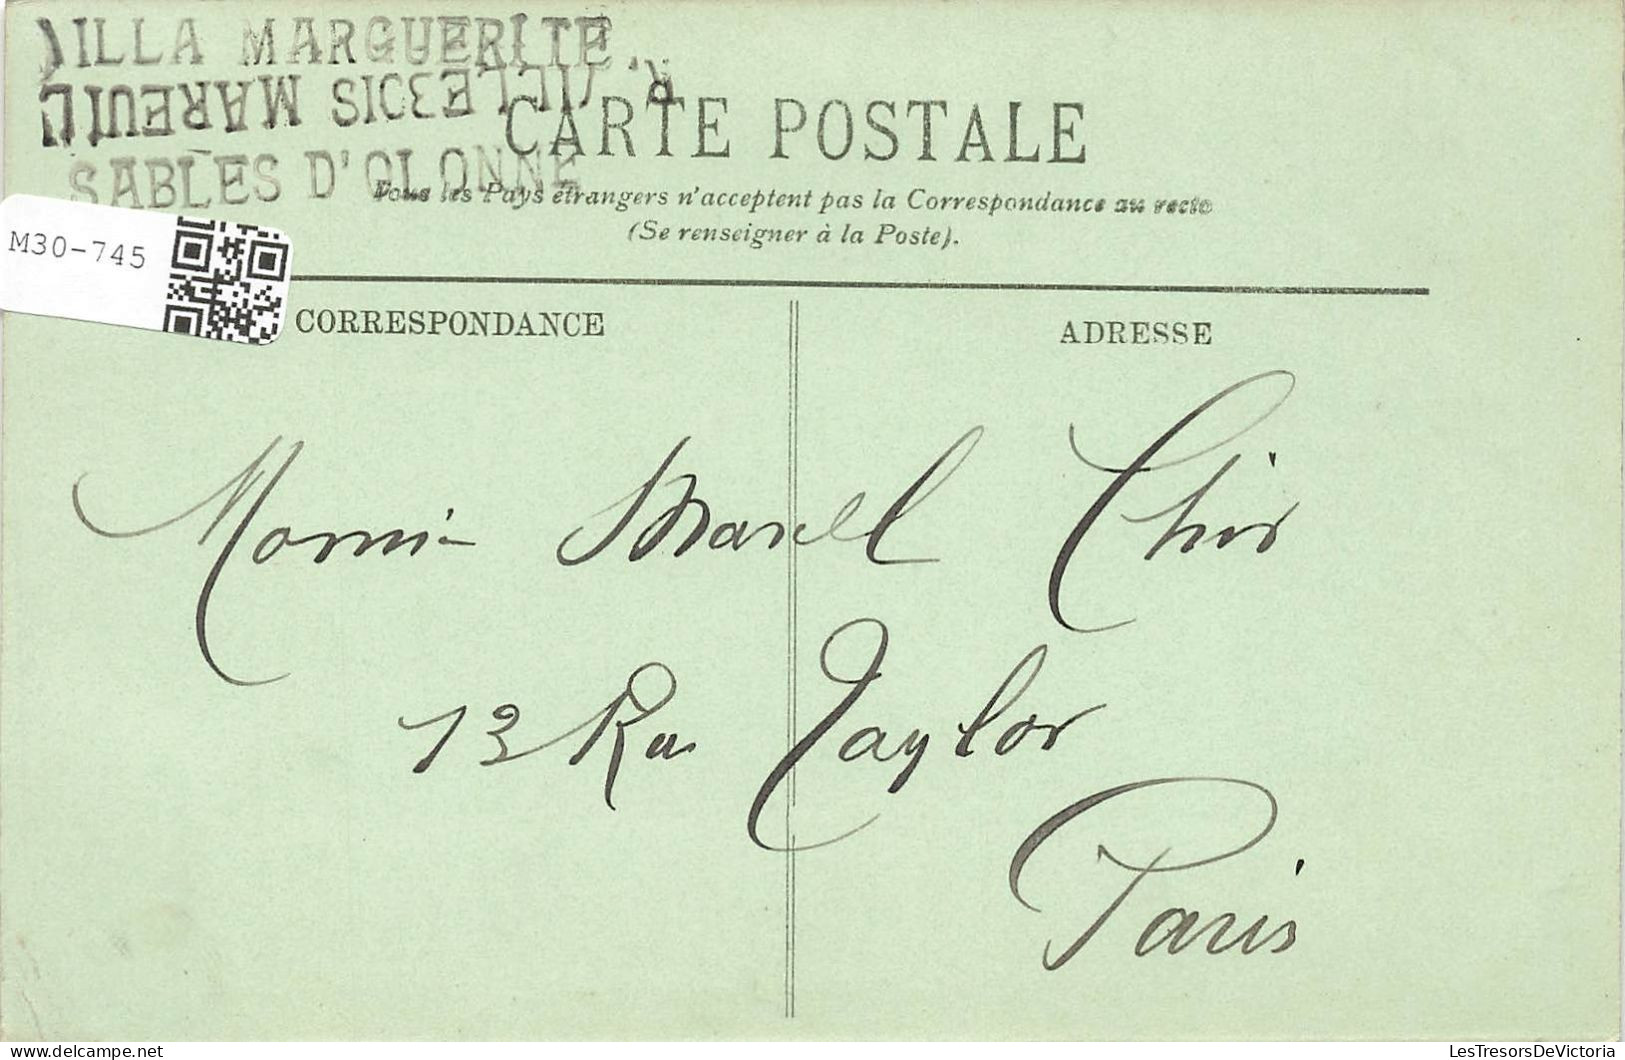 VILLA MARGUERITE.
MAREUIL
SABLES D'OLONNE
CARTE POSTALE
Tous les Pays étrangers n'acceptent pas la Correspondance au recto
(Se renseigner à la Poste).
M30-745
CORRESPONDANCE
ADRESSE
Marcel
13 Rue Taylor
Paris
LesTresorsDeVictoria